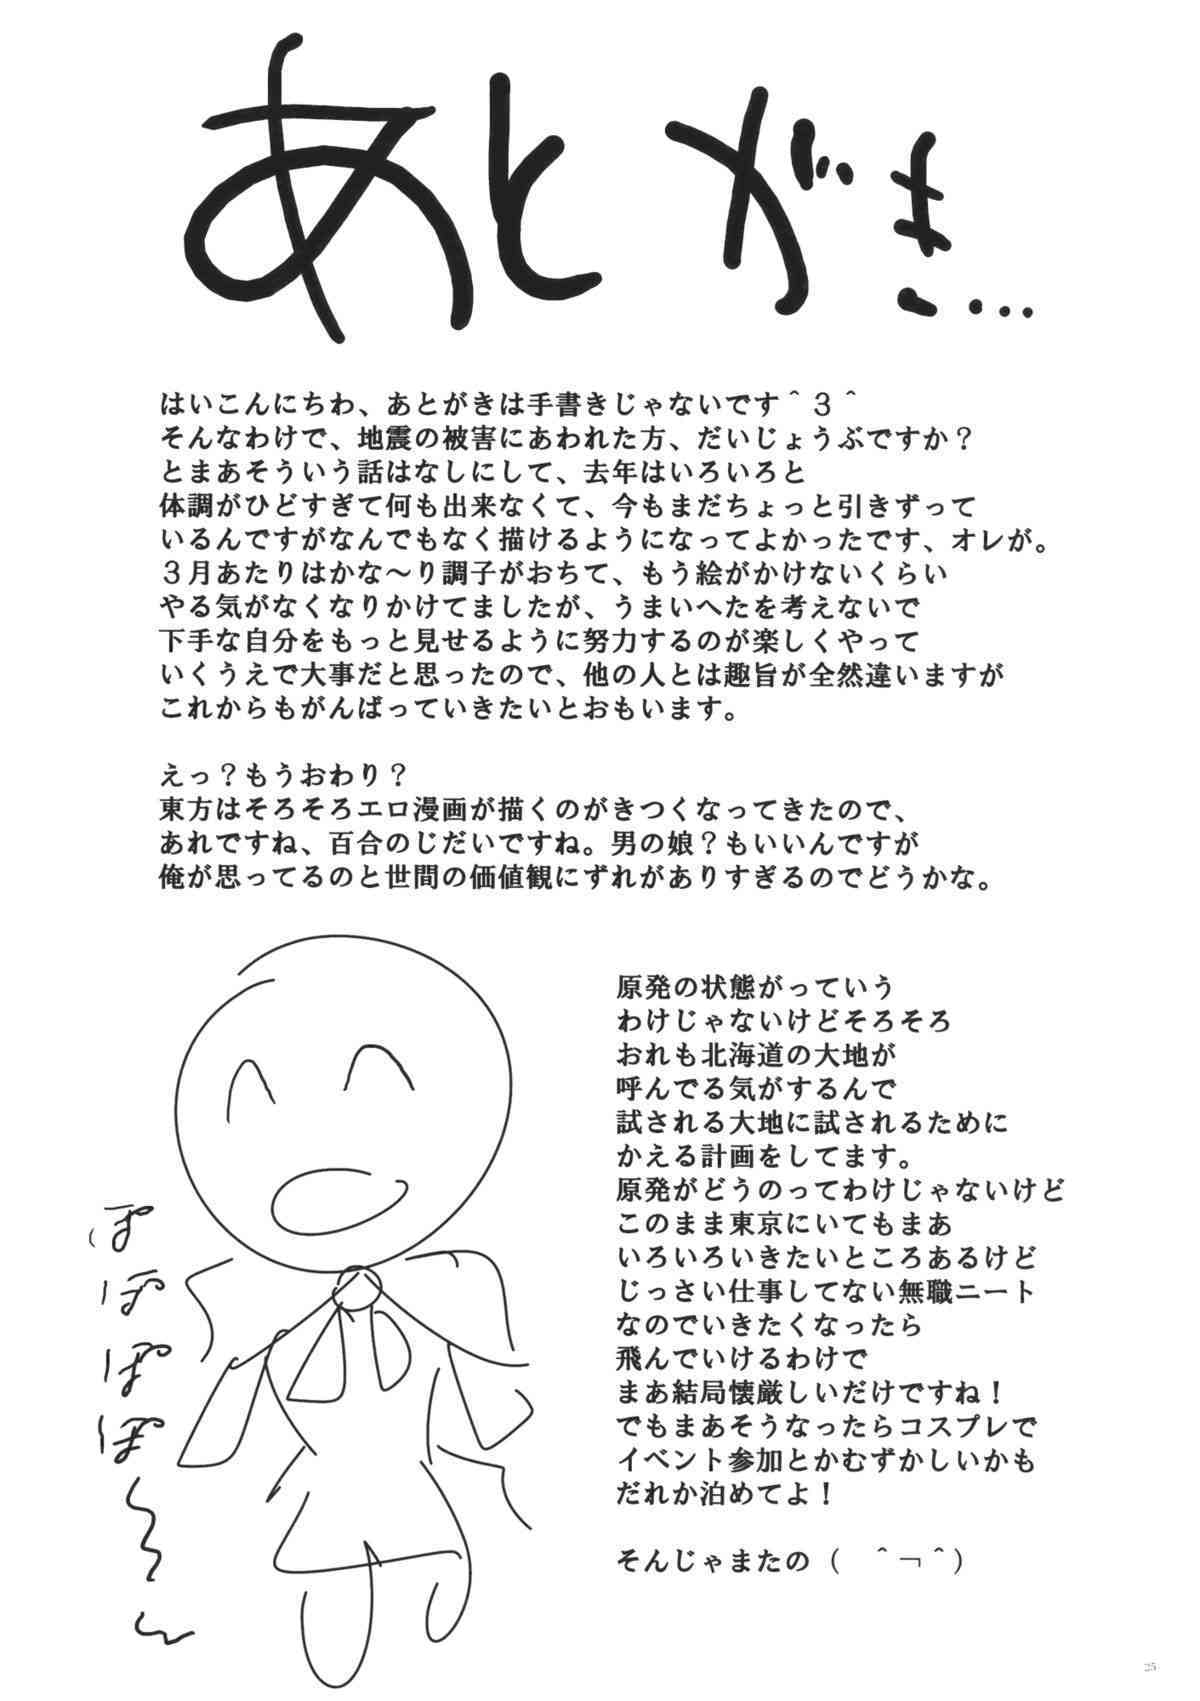 あとがき…
はいこんにちわ、あとがきは手書きじゃないです＾３＾
そんなわけで、地震の被害にあわれた方、だいじょうぶですか？
とまあそういう話はなしにして、去年はいろいろと
体調がひどすぎて何も出来なくて、今もまだちょっと引きずって
いるんですがなんでもなく描けるようになってよかったです、オレが。
３月あたりはかな～り調子がおちて、もう絵がかけないくらい
やる気がなくなりかけてましたが、うまいへたを考えないで
下手な自分をもっと見せるように努力するのが楽しくやって
いくうえで大事だと思ったので、他の人とは趣旨が全然違いますが
これからもがんばっていきたいとおもいます。
えっ？もうおわり？
東方はそろそろエロ漫画が描くのがきつくなってきたので、
あれですね、百合のじだいですね。男の娘？もいいんですが
俺が思ってるのと世間の価値観にずれがありすぎるのでどうかな。
原発の状態がっていう
わけじゃないけどそろそろ
おれも北海道の大地が
呼んでる気がするんで
試される大地に試されるために
かえる計画をしてます。
原発がどうのってわけじゃないけど
このまま東京にいてもまあ
いろいろいきたいところあるけど
じっさい仕事してない無職ニート
なのでいきたくなったら
飛んでいけるわけで
まあ結局懐厳しいだけですね！
でもまあそうなったらコスプレで
イベント参加とかむずかしいかも
だれか泊めてよ！
そんじゃまたの（　＾￢＾）
ぽぽぽぽ～ん
25